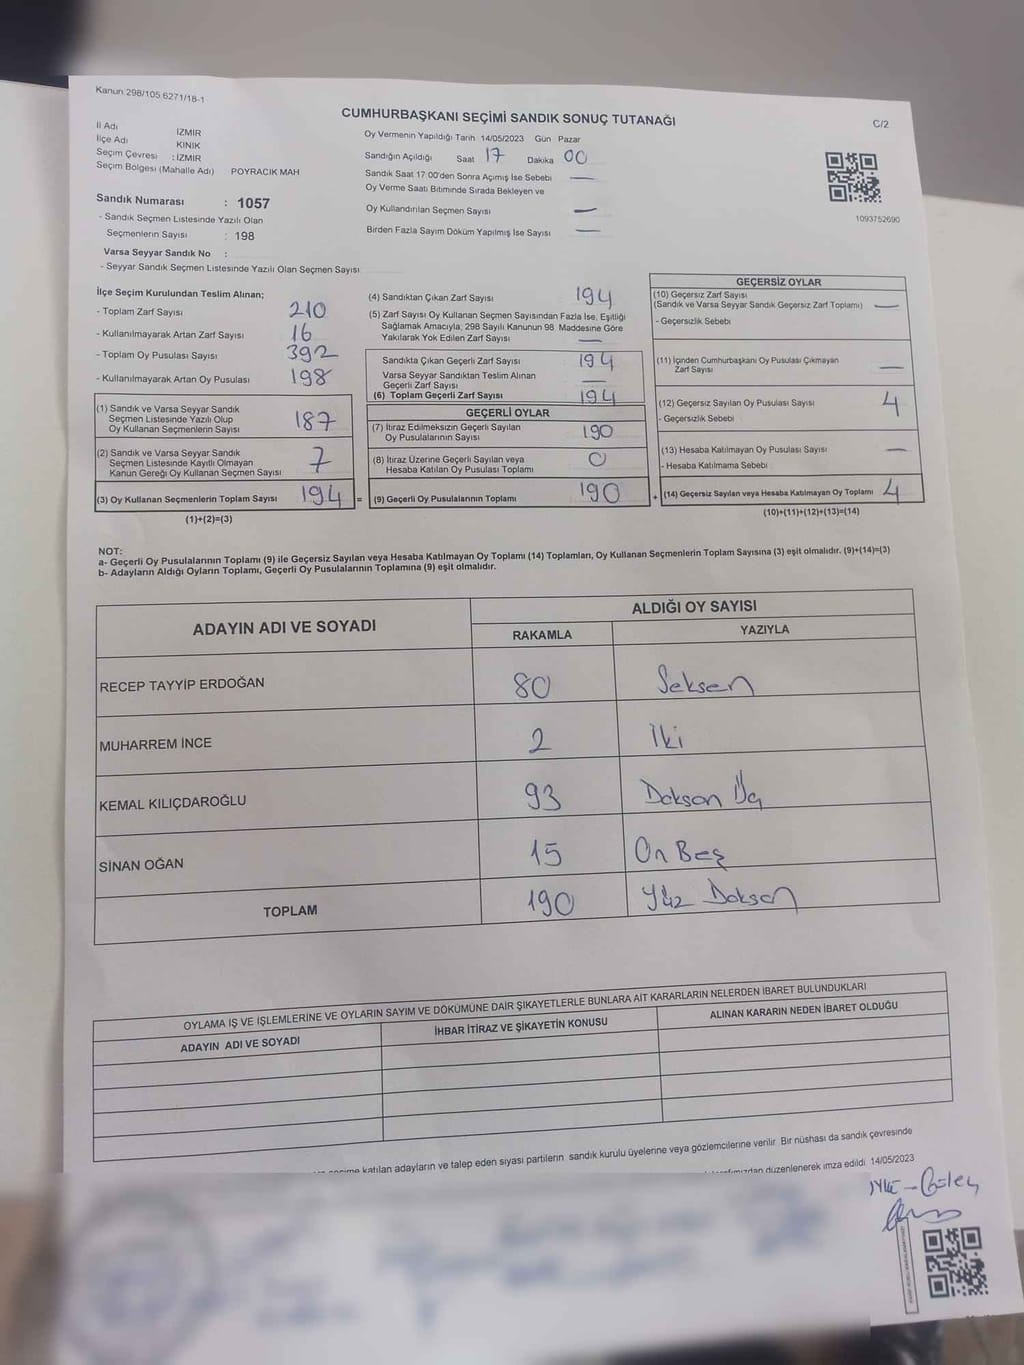 Kanun 298/105 6271/18-1
CUMHURBAŞKANI SEÇİMİ SANDIK SONUÇ TUTANAĞI
C/2
İl Adı İZMİR
İlçe Adı KINIK
Seçim Çevresi : İZMİR
Seçim Bölgesi (Mahalle Adı) POYRACIK MAH
Sandık Numarası : 1057
- Sandık Seçmen Listesinde Yazılı Olan
Seçmenlerin Sayısı : 198
Varsa Seyyar Sandık No :
- Seyyar Sandık Seçmen Listesinde Yazılı Olan Seçmen Sayısı
Oy Vermenin Yapıldığı Tarih 14/05/2023 Gün Pazar
Sandığın Açıldığı Saat 17 Dakika 00
Sandık Saat 17:00'den Sonra Açılmış İse Sebebi —
Oy Verme Saati Bitiminde Sırada Bekleyen ve
Oy Kullandırılan Seçmen Sayısı —
Birden Fazla Sayım Döküm Yapılmış İse Sayısı —
1093752690
İlçe Seçim Kurulundan Teslim Alınan;
- Toplam Zarf Sayısı 210
- Kullanılmayarak Artan Zarf Sayısı 16
- Toplam Oy Pusulası Sayısı 392
- Kullanılmayarak Artan Oy Pusulası 198
(1) Sandık ve Varsa Seyyar Sandık
Seçmen Listesinde Yazılı Olup
Oy Kullanan Seçmenlerin Sayısı 187
(2) Sandık ve Varsa Seyyar Sandık
Seçmen Listesinde Kayıtlı Olmayan
Kanun Gereği Oy Kullanan Seçmen Sayısı 7
(3) Oy Kullanan Seçmenlerin Toplam Sayısı 194 =
(1)+(2)=(3)
(4) Sandıktan Çıkan Zarf Sayısı 194
(5) Zarf Sayısı Oy Kullanan Seçmen Sayısından Fazla İse, Eşitliği
Sağlamak Amacıyla, 298 Sayılı Kanunun 98. Maddesine Göre
Yakılarak Yok Edilen Zarf Sayısı —
Sandıkta Çıkan Geçerli Zarf Sayısı 194
Varsa Seyyar Sandıktan Teslim Alınan
Geçerli Zarf Sayısı —
(6) Toplam Geçerli Zarf Sayısı 194
GEÇERLİ OYLAR
(7) İtiraz Edilmeksizin Geçerli Sayılan
Oy Pusulalarının Sayısı 190
(8) İtiraz Üzerine Geçerli Sayılan veya
Hesaba Katılan Oy Pusulası Toplamı 0
(9) Geçerli Oy Pusulalarının Toplamı 190 +
GEÇERSİZ OYLAR
(10) Geçersiz Zarf Sayısı
(Sandık ve Varsa Seyyar Sandık Geçersiz Zarf Toplamı) —
- Geçersizlik Sebebi
(11) İçinden Cumhurbaşkanı Oy Pusulası Çıkmayan
Zarf Sayısı —
(12) Geçersiz Sayılan Oy Pusulası Sayısı 4
- Geçersizlik Sebebi
(13) Hesaba Katılmayan Oy Pusulası Sayısı —
- Hesaba Katılmama Sebebi
(14) Geçersiz Sayılan veya Hesaba Katılmayan Oy Toplamı 4
(10)+(11)+(12)+(13)=(14)
NOT:
a- Geçerli Oy Pusulalarının Toplamı (9) ile Geçersiz Sayılan veya Hesaba Katılmayan Oy Toplamı (14) Toplamları, Oy Kullanan Seçmenlerin Toplam Sayısına (3) eşit olmalıdır. (9)+(14)=(3)
b- Adayların Aldığı Oyların Toplamı, Geçerli Oy Pusulalarının Toplamına (9) eşit olmalıdır.
ADAYIN ADI VE SOYADI
ALDIĞI OY SAYISI
RAKAMLA YAZIYLA
RECEP TAYYİP ERDOĞAN 80 Seksen
MUHARREM İNCE 2 İki
KEMAL KILIÇDAROĞLU 93 Doksan Üç
SİNAN OĞAN 15 On Beş
TOPLAM 190 Yüz Doksan
OYLAMA İŞ VE İŞLEMLERİNE VE OYLARIN SAYIM VE DÖKÜMÜNE DAİR ŞİKAYETLERLE BUNLARA AİT KARARLARIN NELERDEN İBARET BULUNDUKLARI
ADAYIN ADI VE SOYADI İHBAR İTİRAZ VE ŞİKAYETİN KONUSU ALINAN KARARIN NEDEN İBARET OLDUĞU
katılan adayların ve talep eden siyasi partilerin sandık kurulu üyelerine veya gözlemcilerine verilir. Bir nüshası da sandık çevresinde
düzenlenerek imza edildi. 14/05/2023